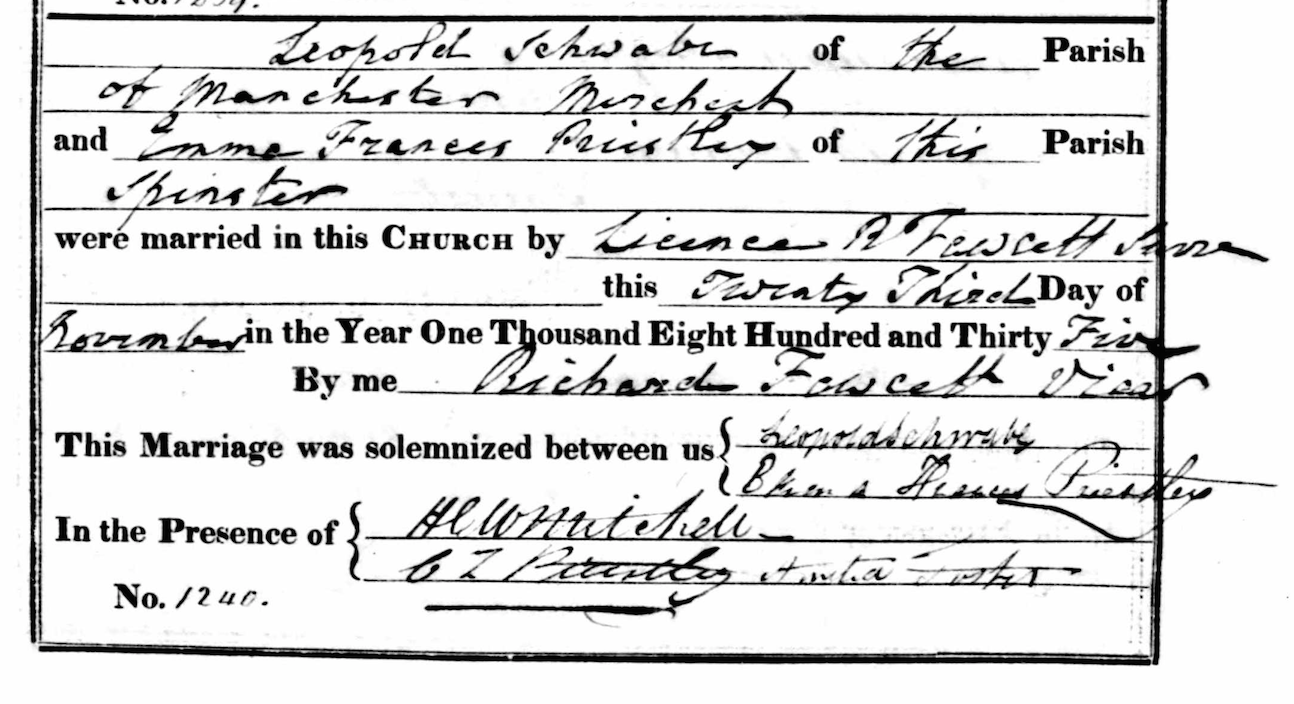 No. 1239.
Leopold Schwabe of the Parish
of Manchester Merchant
and Emma Frances Priestley of this Parish
Spinster
were married in this CHURCH by Licence R Fawcett
this Twenty Third Day of
November in the Year One Thousand Eight Hundred and Thirty Five
By me Richard Fawcett Vicar
This Marriage was solemnized between us { Leopold Schwabe
Emma Frances Priestley
In the Presence of { H C W Mitchell
C Z Priestley Foster
No. 1240.